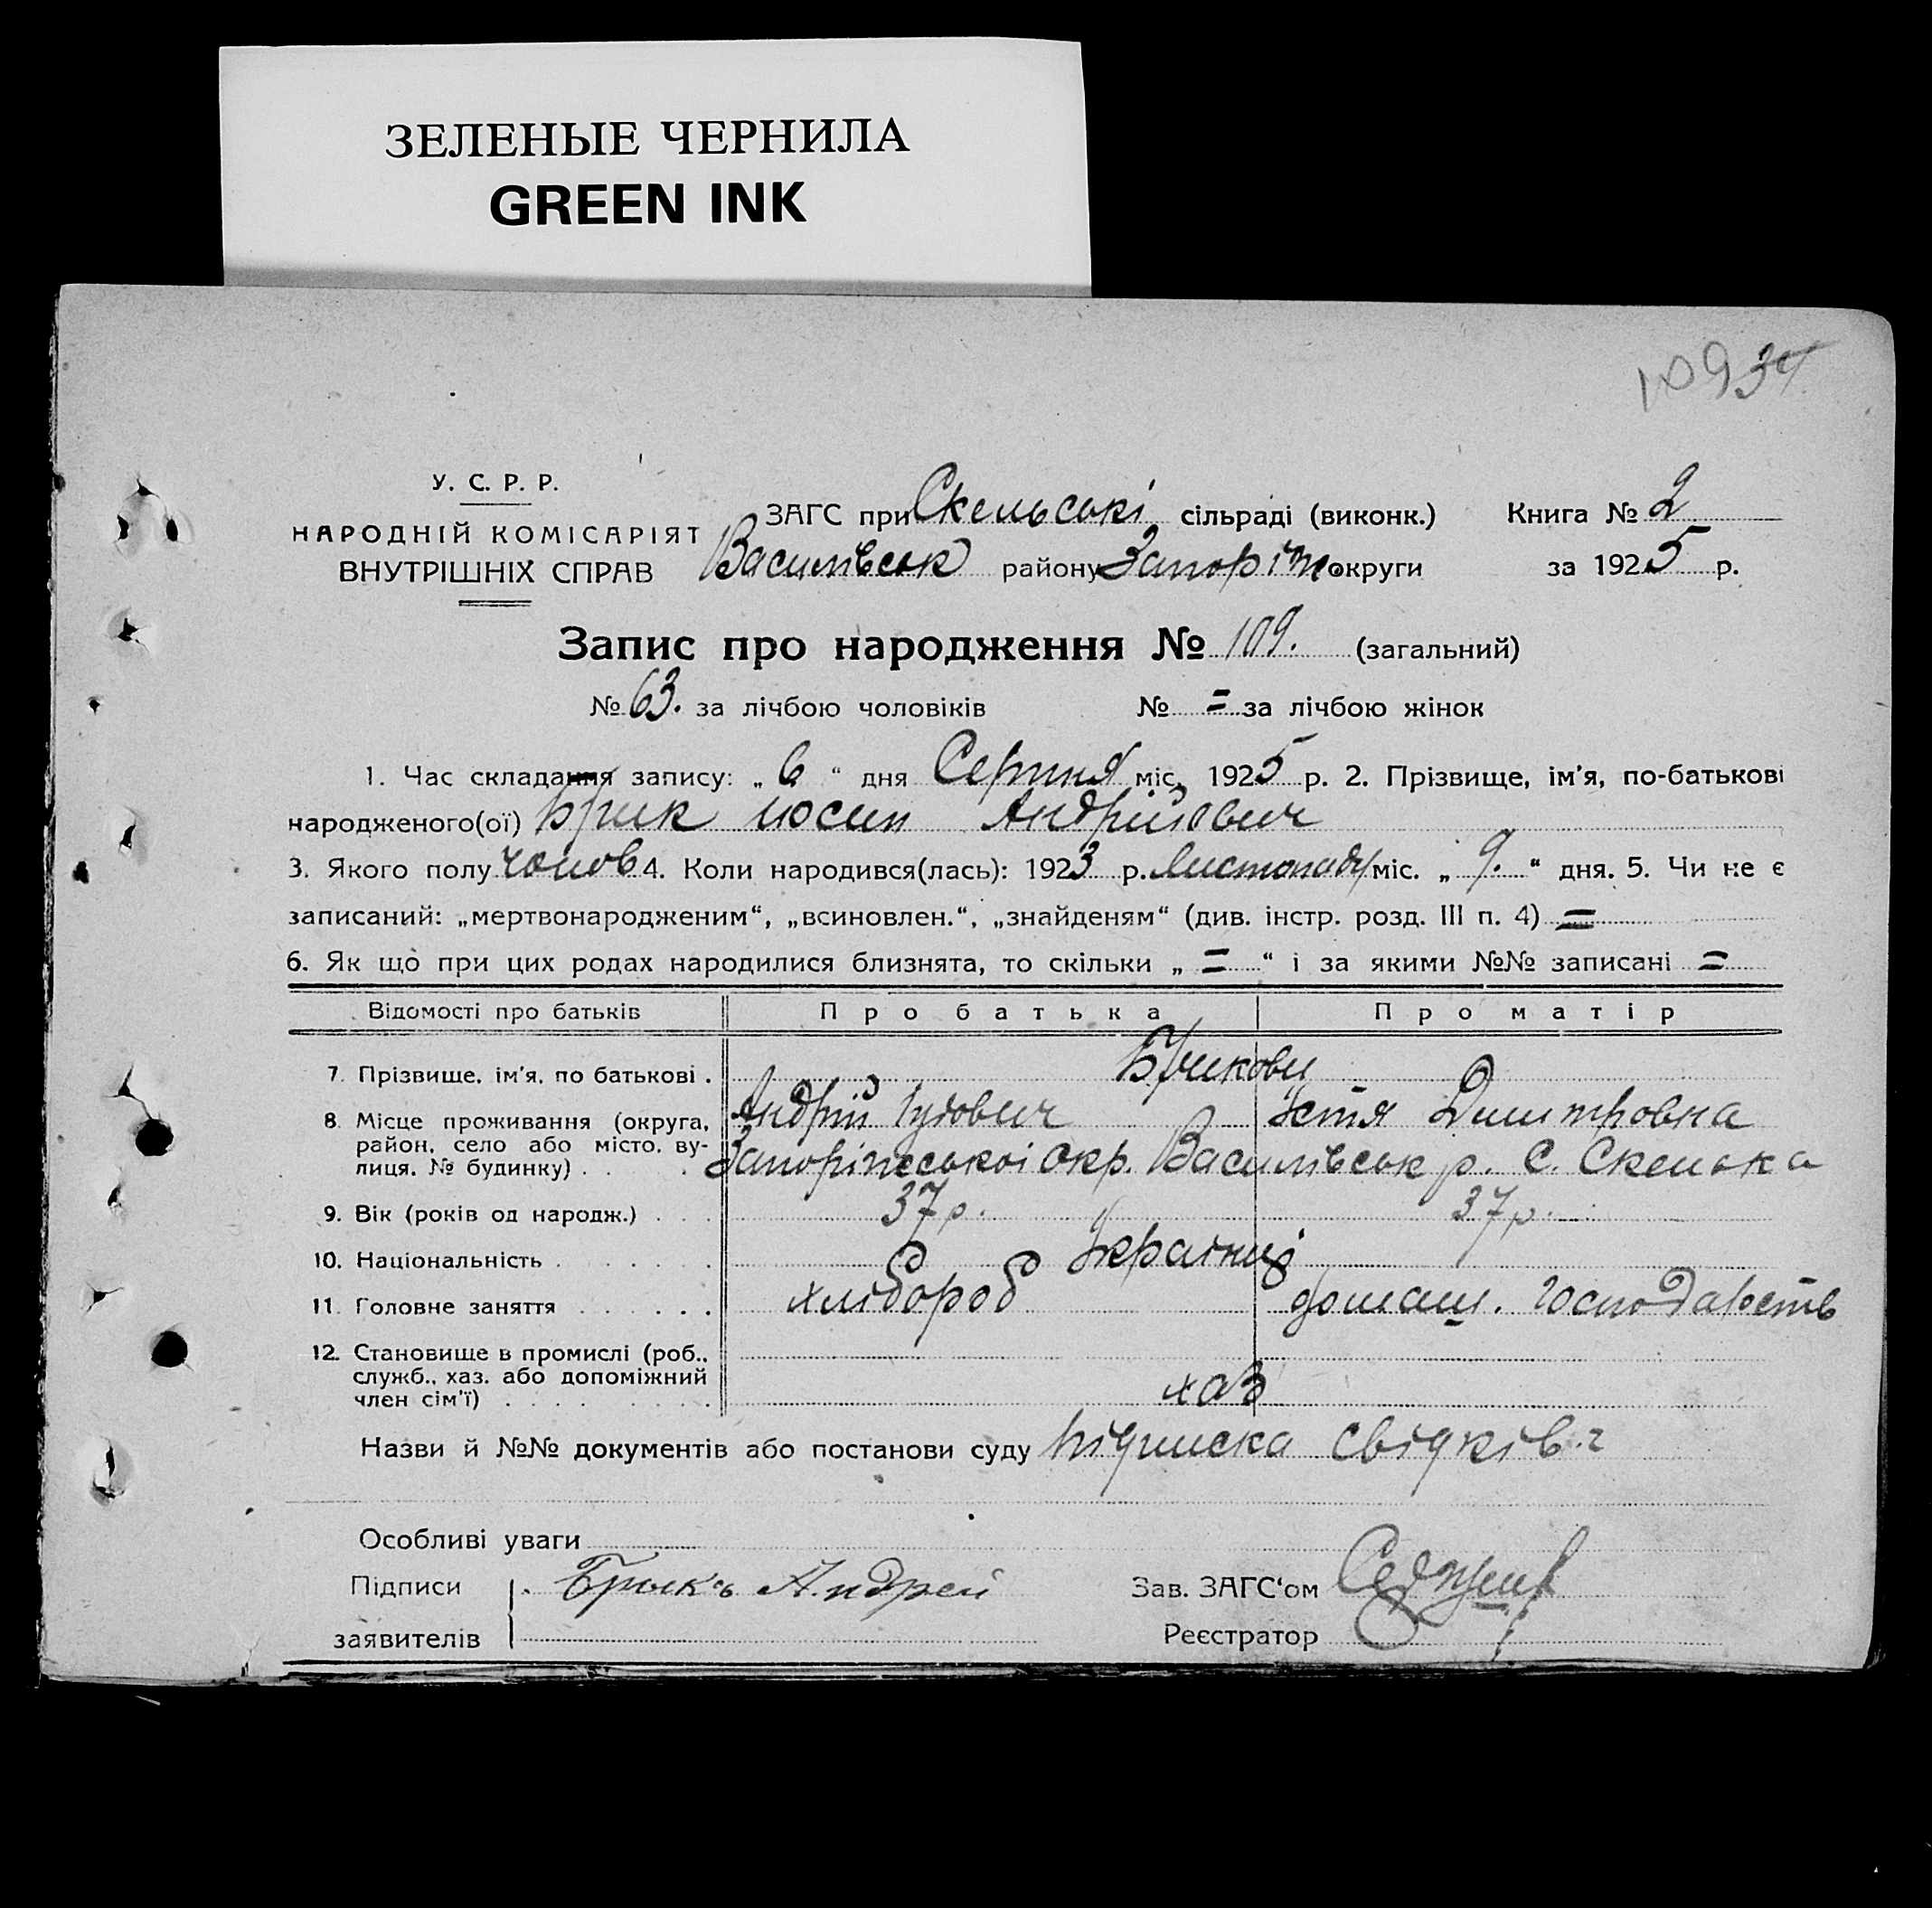 ЗЕЛЕНЫЕ ЧЕРНИЛА
GREEN INK
10934
У. С. Р. Р.
НАРОДНІЙ КОМІСАРІЯТ
ВНУТРІШНІХ СПРАВ
ЗАГС при Скельські сільраді (виконк.) Книга № 2
Василівськ району Запоріж. округи за 1925 р.
Запис про народження № 109. (загальний)
№ 63. за лічбою чоловіків № = за лічбою жінок
1. Час складання запису: „ 6 “ дня Серпня міс. 1925 р. 2. Прізвище, ім'я, по-батькові
народженого(ої) Брик Йосип Андрійович
3. Якого полу чолов 4. Коли народився(лась): 1923 р. Листопаду міс. „ 9. “ дня. 5. Чи не є
записаний: „мертвонародженим“, „всиновлен.“, „знайденям“ (див. інстр. розд. III п. 4) =
6. Як що при цих родах народилися близнята, то скільки „ = “ і за якими №№ записані =
Відомості про батьків Про батька Про матір
7. Прізвище, ім'я, по батькові . Брикови
Андрій Устя Дмитровна
8. Місце проживання (округа,
район, село або місто, ву-
лиця, № будинку) . . . Запоріжської окр. Василівськ р. С. Скелька
9. Вік (років од народж.) . . . 37 р. 37 р.
10. Національність . . . . . . . Українці
11. Головне заняття . . . . . . хлібороб домаш. господарств
12. Становище в промислі (роб.,
служб., хаз. або допоміжний
член сім'ї) . . . . . . . . . хаз
Назви й №№ документів або постанови суду підписка свідків
Особливі уваги
Підписи Брикъ Андрей Зав. ЗАГС'ом
заявителів Реєстратор